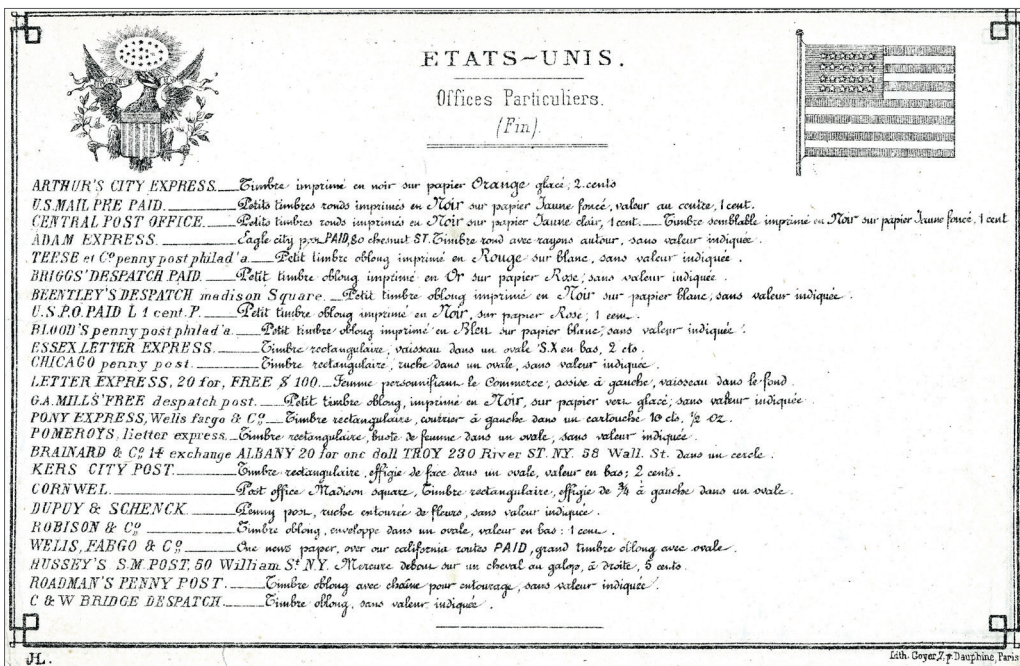 ETATS-UNIS.
Offices Particuliers.
(Fin).
ARTHUR'S CITY EXPRESS. Timbre imprimé en noir sur papier Orange glacé; 2 cents
U.S. MAIL PRE PAID. Petits timbres ronds imprimés en Noir sur papier Jaune foncé, valeur au centre, 1 cent.
CENTRAL POST OFFICE. Petits timbres ronds imprimés en Noir sur papier Jaune clair, 1 cent. Timbre semblable imprimé en Noir sur papier Jaune foncé, 1 cent
ADAM EXPRESS. Eagle city pos. PAID, 80 chesnut ST. Timbre rond avec rayons autour, sans valeur indiquée.
TEESE et Cº penny post philad'a. Petit timbre oblong imprimé en Rouge sur blanc, sans valeur indiquée.
BRIGGS' DESPATCH PAID. Petit timbre oblong imprimé en Or sur papier Rose; sans valeur indiquée.
BEENTLEY'S DESPATCH madison Square. Petit timbre oblong imprimé en Noir sur papier blanc; sans valeur indiquée.
U.S.P.O. PAID L 1 cent. P. Petit timbre oblong imprimé en Noir, sur papier Rose; 1 cent.
BLOOD'S penny post philad'a. Petit timbre oblong imprimé en Bleu sur papier blanc; sans valeur indiquée.
ESSEX LETTER EXPRESS. Timbre rectangulaire, vaisseau dans un ovale S.X en bas, 2 cts.
CHICAGO penny post. Timbre rectangulaire, ruche dans un ovale, sans valeur indiquée.
LETTER EXPRESS, 20 for, FREE $ 100. Femme personnifiant le Commerce, assise à gauche, vaisseau dans le fond.
G.A. MILLS' FREE despatch post. Petit timbre oblong, imprimé en Noir, sur papier vert glacé; sans valeur indiquée.
PONY EXPRESS, Wells fargo & Cº. Timbre rectangulaire, courrier à gauche dans un cartouche 10 cts, ½ oz.
POMEROYS, lietter express. Timbre rectangulaire, buste de femme dans un ovale, sans valeur indiquée.
BRAINARD & Cº exchange ALBANY 20 for one doll TROY 230 River ST. NY. 58 Wall. St. dans un cercle.
KERS CITY POST. Timbre rectangulaire, effigie de face dans un ovale, valeur en bas; 2 cents.
CORNWEL. Post office Madison square, Timbre rectangulaire, effigie de ¾ à gauche dans un ovale.
DUPUY & SCHENCK. Penny post, ruche entourée de fleurs, sans valeur indiquée.
ROBISON & Cº Timbre oblong, enveloppe dans un ovale, valeur en bas: 1 cent.
WELIS, FARGO & Cº. One news paper, over our california routes PAID, grand timbre oblong avec ovale.
HUSSEY'S S.M. POST, 50 William St. N.Y. Mercure debout sur un cheval au galop, à droite, 5 cents.
ROADMAN'S PENNY POST. Timbre oblong avec chaîne pour entourage, sans valeur indiquée.
C & W BRIDGE DESPATCH. Timbre oblong, sans valeur indiquée.
JL.
Lith. Goyer, 7, p. Dauphine, Paris